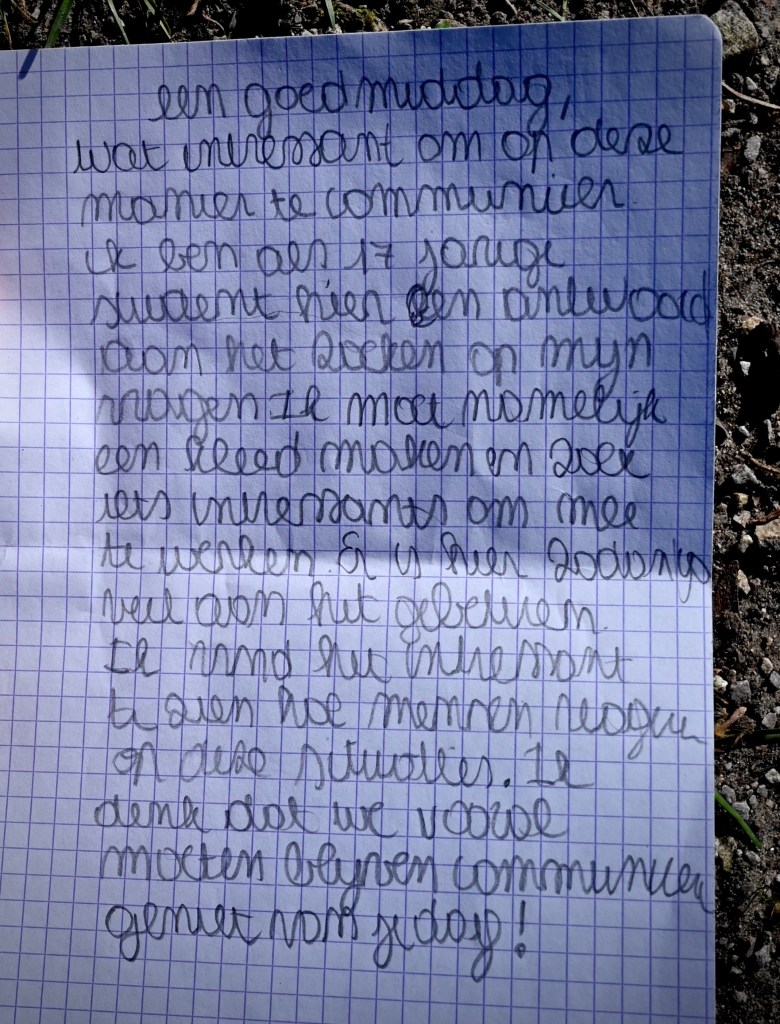 een goed middag,
wat intressant om op deze
manier te communicer
ik ben als 17 jarige
student hier een antwoord
aan het zoeken op mijn
vragen Ik moet namelijk
een kleed maken en zoek
iets intressants om mee
te werken. Er is hier zodanig
veel aan het gebeuren.
Ik vind het intressant
te zien hoe mensen reageren
op deze situaties. Ik
denk dat we vooral
moeten blijven communiceren
geniet van je dag!